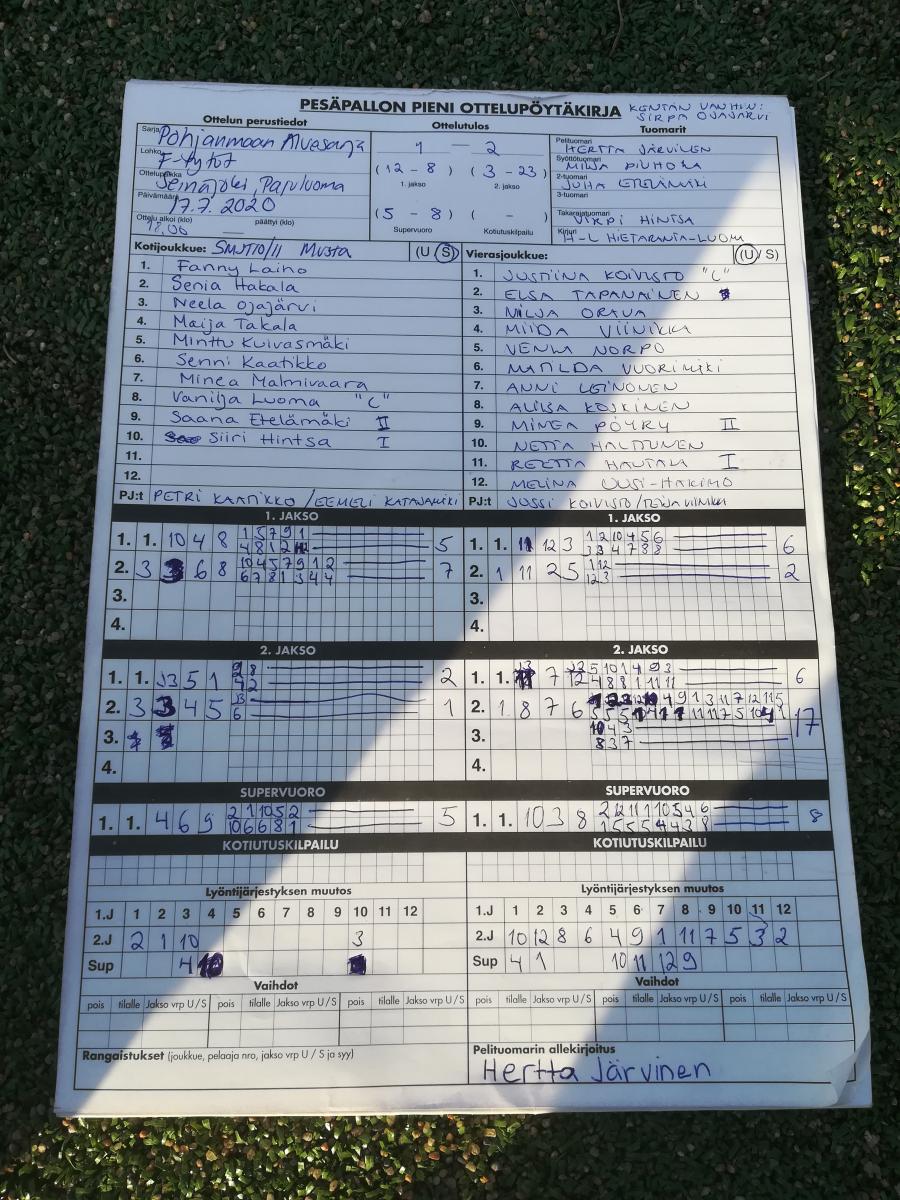 PESÄPALLON PIENI OTTELUPÖYTÄKIRJA
KENTÄN VANHIN:
SIRPA OJAJÄRVI
Ottelun perustiedot
Ottelutulos
Tuomarit
Sarja Pohjanmaan Aluesarja
Lohko F-tytöt
Ottelupaikka Seinäjoki, Pajuluoma
Päivämäärä 17.7. 2020
Ottelu alkoi (klo) 18.00 päättyi (klo) —
1 — 2
(12 - 8) (3 - 23)
1. jakso 2. jakso
(5 - 8) ( - )
Supervuoro Kotiutuskilpailu
Pelituomari HERTTA JÄRVINEN
Syöttötuomari
2-tuomari JUHA ETELÄMÄKI
3-tuomari
Takarajatuomari VIRPI HINTSA
Kirjuri H-L HIETARANTA-LUOMA
Kotijoukkue: SMJT10/11 Musta (U / S)
1. Fanny Laiho
2. Senia Hakala
3. Neela Ojajärvi
4. Maija Takala
5. Minttu Kuivasmäki
6. Senni Kaatikko
7. Minea Malmivaara
8. Vanilja Luoma "C"
9. Saana Etelämäki II
10. Siiri Hintsa I
11.
12.
PJ:t PETRI KAATIKKO / EEMELI KATAJAMÄKI
Vierasjoukkue: (U / S)
1. JUSTIINA KOIVISTO "C"
2. ELSA TAPANAINEN
3. MILJA ORAVA
4. MIIDA VIINIKKA
5. VENLA NORPO
6. MATILDA VUORIMÄKI
7. ANNI LEINONEN
8. ALIISA KOSKINEN
9. MINEA PÖYRY II
10. NETTA HALTTUNEN
11. REETTA HAUTALA I
12. MELINA UUSI-HAKIMO
PJ:t JUSSI KOIVISTO /
1. JAKSO
1. 1. 10 4 8
1 5 7 9 1
4 8 1 2
5
2. 3 3 6 8
10 4 5 7 9 1 2
6 7 8 1 3 4 4
7
3.
4.
1. JAKSO
1. 1. 11 12 3
1 2 10 4 5 6
3 3 4 7 8 8
6
2. 1 11 2 5
1 12
12 3
2
3.
4.
2. JAKSO
1. 1. 3 5 1
2
2. 3 3 4 5
6
1
3.
4.
2. JAKSO
1. 1. 7 12
5 10 1 4 9 3
4 8 8 1 11 11
6
2. 1 8 7 6
4 9 1 3 11 7 12 11 5
17
3.
10 4 3
8 3 7
4.
SUPERVUORO
1. 1. 4 6 9
2 1 10 5 2
10 6 6 8 1
5
SUPERVUORO
1. 1. 10 3 8
2 12 11 1 10 5 4 6
1 5 5 5 4 4 3 8
8
KOTIUTUSKILPAILU
KOTIUTUSKILPAILU
Lyöntijärjestyksen muutos
1.J 1 2 3 4 5 6 7 8 9 10 11 12
2.J 2 1 10 3
Sup 4 10
Lyöntijärjestyksen muutos
1.J 1 2 3 4 5 6 7 8 9 10 11 12
2.J 10 12 8 6 4 9 1 11 7 5 3 2
Sup 4 1 10 11 12 9
Vaihdot
pois tilalle Jakso vrp U / S pois tilalle Jakso vrp U / S pois tilalle Jakso vrp U / S
Vaihdot
pois tilalle Jakso vrp U / S pois tilalle Jakso vrp U / S pois tilalle Jakso vrp U / S
Rangaistukset (joukkue, pelaaja nro, jakso vrp U / S ja syy)
Pelituomarin allekirjoitus
Hertta Järvinen